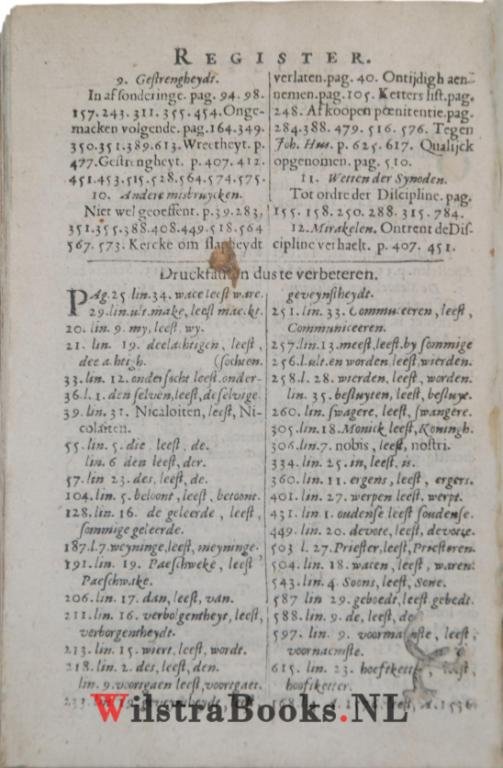 REGISTER.
9. Gestrengheydt.
In afsonderinge. pag. 94. 98.
157. 243. 311. 355. 454. Onge-
macken volgende. pag. 164. 349.
350. 351. 389. 613. Wreetheyt. p.
477. Gestrengheyt. p. 407. 412.
451. 453. 515. 528. 564. 574. 575.
10. Andere misbruycken.
Niet wel geoeffent. p. 39. 283.
351. 355. 388. 408. 449. 518. 564
567. 573. Kercke om slapheydt
verlaten. pag. 40. Ontijdigh aen-
nemen. pag. 105. Ketters list. pag.
248. Afkoopen pœnitentie. pag.
284. 388. 479. 516. 576. Tegen
Joh. Hus. p. 625. 617. Qualijck
opgenomen. pag. 510.
11. Wetten der Synoden.
Tot ordre der Discipline. pag.
155. 158. 250. 288. 315. 784.
12. Mirakelen. Ontrent de Dis-
cipline verhaelt. p. 407. 451.
Druckfauten dus te verbeteren.
PAg. 25 lin. 34. wace leest ware.
29. lin. ult. make, leest
20. lin. 9. my, leest, wy.
21. lin. 19. deelachtigen, leest,
dee achtigh. (sochten.
33. lin. 12. ondersocht leest. onder-
36. l. 1. den selven, leest, deselvige.
39. lin. 31. Nicaloiten, leest, Ni-
colaiten.
55. lin. 5. die leest, de.
lin. 6 den leest, der.
57. lin 23. des, leest, de.
104. lin. 5. beloont, leest, betoont.
128. lin. 16. de geleerde, leest,
sommige geleerde.
187. l. 7. weyninge, leest, meyninge.
191. lin. 19. Paeschweke, leest
Paeschwake.
206. lin. 17. dan, leest, van.
211. lin. 16. verbolgentheyt, leest,
verborgentheydt.
213. lin. 15. wiert, leest, wordt.
218. lin. 2. des, leest, den.
lin. 9. voortgaen leest, voortgaet.
geveynstheydt.
251. lin. 33. Commuceren, leest,
Communiceren.
257. lin. 13. meest, leest, by sommige
256. l. ult. en worden, leest, wierden.
258. l. 28. wierden, leest, worden.
lin. 35. besluyten, leest, besluyt.
260. lin. swagere, leest, swangere.
305. lin. 18. Monick leest, Koningh.
306. lin. 7. nobis, leest, nostri.
334. lin. 25. in, leest, is.
360. lin. 11. ergens, leest, ergers.
401. lin. 27. werpen leest, werpt.
431. lin. 1. oudense leest soudense.
449. lin. 20. devote, leest,
503 l. 27. Priester, leest, Priesteren.
504. lin. 18. waten, leest, waren.
543. lin. 4. Soons, leest, Sone.
587 lin 29. geboedt, leest gebedt.
588. lin. 9. de, leest,
597. lin. 9. leest,
voornaemste.
615. lin. 23. leest,
hooftketter.
WilstraBooks.NL